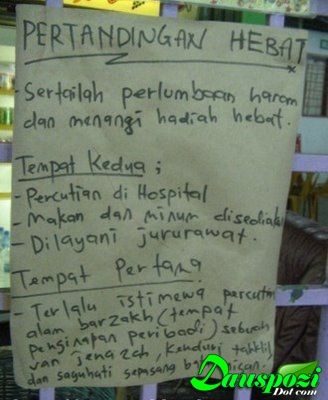 PERTANDINGAN HEBAT
- Sertailah perlumbaan haram
dan menangi hadiah hebat.
Tempat Kedua ;
- Percutian di Hospital
- Makan dan minum disediakan
- Dilayani jururawat.
Tempat Pertama
- Terlalu istimewa percutian
alam barzakh (tempat
penginapan peribadi) sebuah
van jenazah, kenduri tahlil
dan saguhati sepasang
Dauspozi
Dot.com